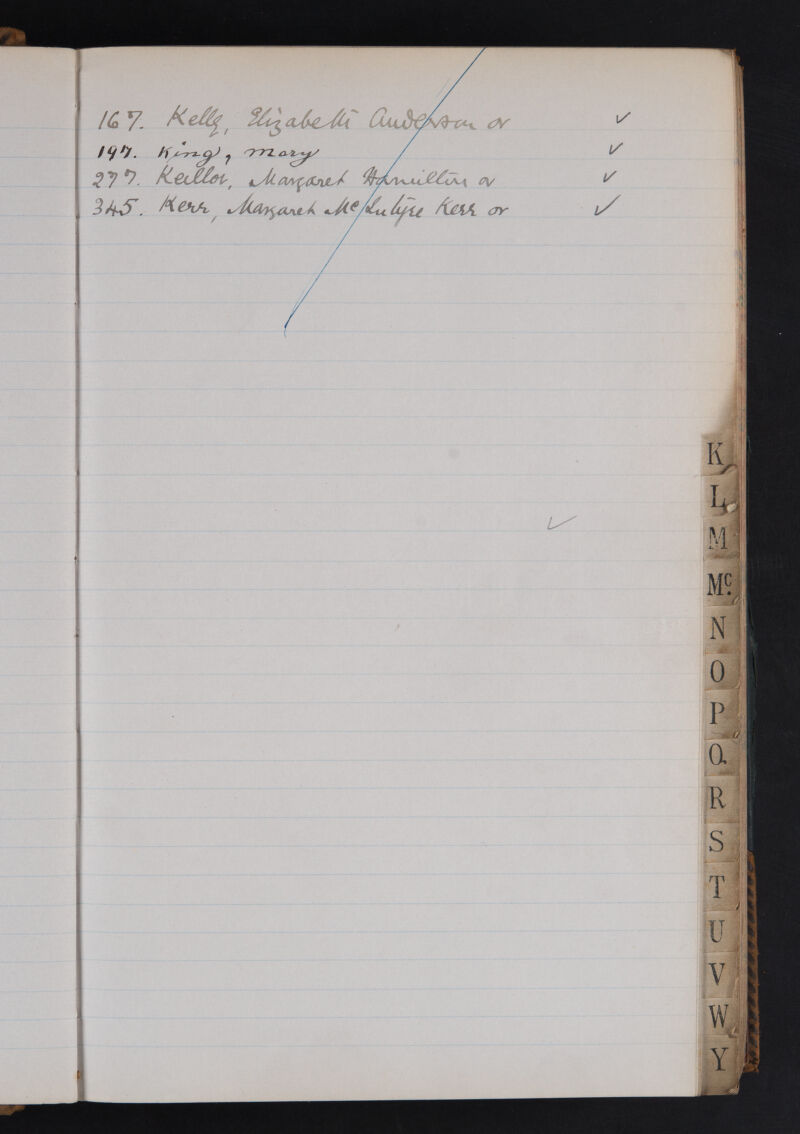 167. Kelly, Elizabeth Anderson or ✓
197. King, Mary ✓
277. Keillor, Margaret Hamilton or ✓
345. Kerr, Margaret McIntyre Kerr or ✓
✓
K
L
M
Mc.
N
O
P
Q
R
S
T
U
V
W
Y